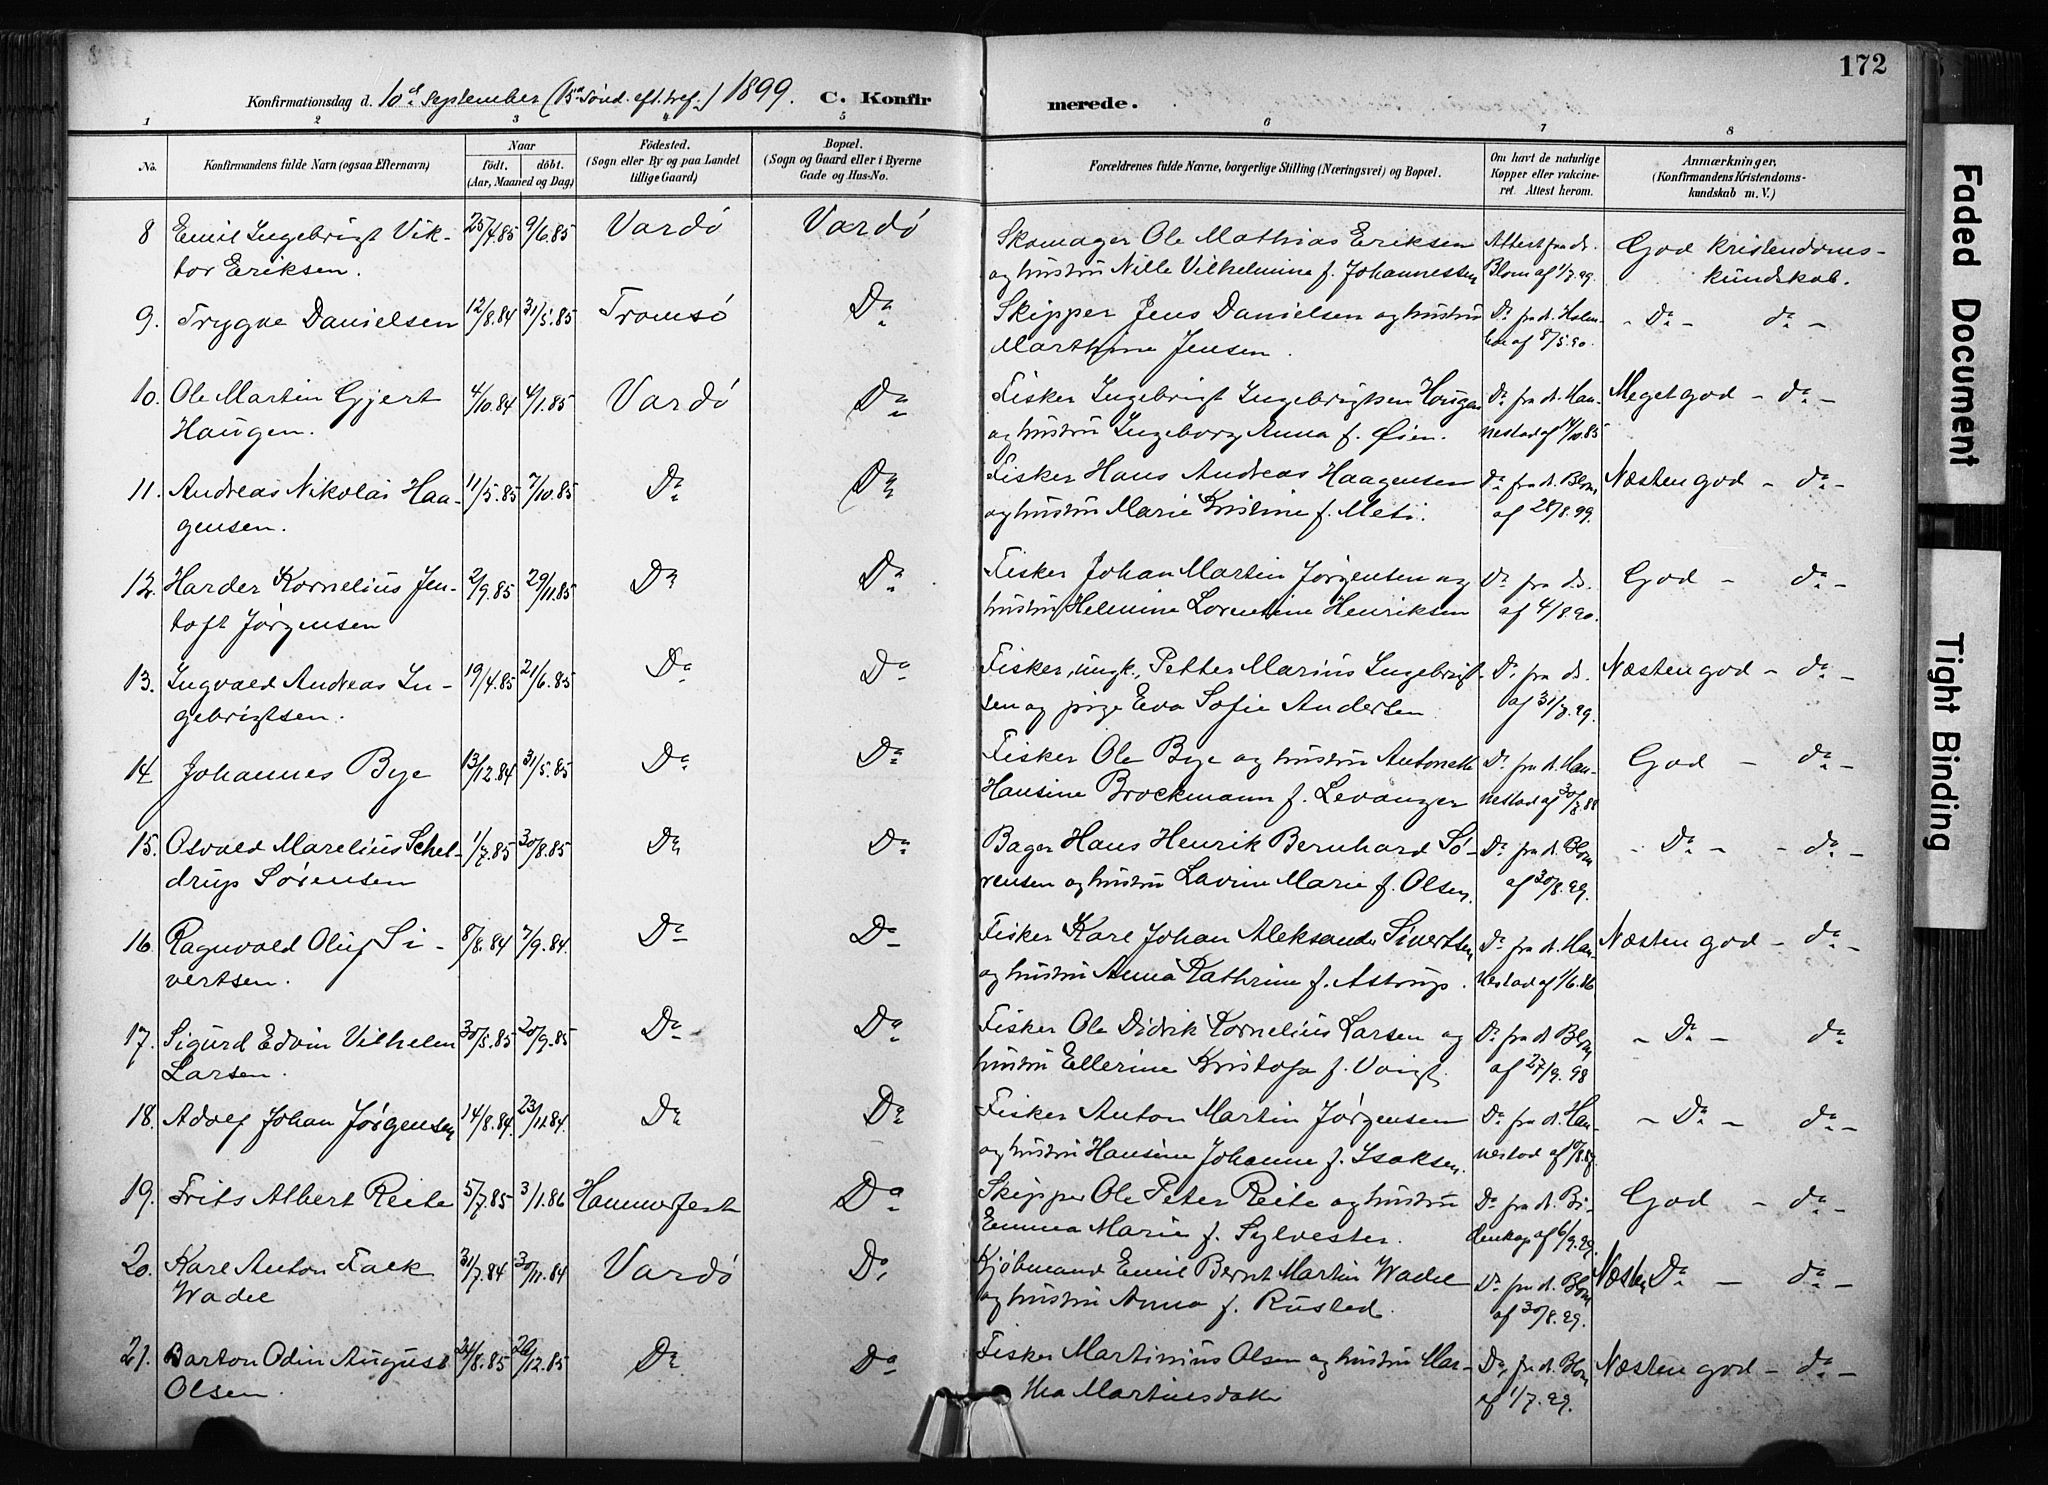 172
Konfirmationsdag d. 10de September (15de Sönd. eft. tref.) 1899. C. Konfir merede.
1 2 3 4 5 6 7 8
No. Konfirmandens fulde Navn (ogsaa Efternavn) Naar födt. döbt. (Aar, Maaned og Dag) Födested. (Sogn eller By og paa Landet tillige Gaard) Bopæl. (Sogn og Gaard eller i Byerne Gade og Hus-No. Forældrenes fulde Navne, borgerlige Stilling (Næringsvei) og Bopæl. Om havt de naturlige Kopper eller vakcineret. Attest herom. Anmærkninger, (Konfirmandens Kristendomskundskab m. V.)
8 Emil Ingebrigt Vik- 25/4.85 9/6.85 Vardö Vardö Skomager Ole Mathias Eriksen Attest fra dr. God kristendoms-
tor Eriksen. og hustru Nille Vilhelmine f. Johannessen Blom af 1/7.99. kundskab.
9. Trygve Danielsen 12/8.84 31/5.85 Tromsö Do Skipper Jens Danielsen og hustru Do fra d. Holm- - Do - do -
Marthine Jensen. af 8/5.90.
10. Ole Martin Gjert 4/10.84 4/1.85 Vardö Do Fisker Ingebrigt Ingebrigtsen Haugen Do fra d. Han- Meget god - do -
Haugen. og hustru Ingeborg Anna f. Øien. nestad af 14/10.85
11. Andreas Nikolai Haa- 11/5.85 7/10.85 Do Do Fisker Hans Andreas Haagensen Do fra d. Blom Næsten god - do -
gensen. og hustru Marie Kristine f. Meti. af 28/8.99.
12. Harder Kornelius Jen- 2/9.85 29/11.85 Do Do Fisker Johan Martin Jørgensen og Do fra ds. God - do -
toft Jørgensen hustru Helmine Lorentine Henriksen af 4/8.90.
13. Ingvald Andreas In- 19/4.85 21/6.85 Do Do Fisker, ungk., Petter Marius Ingebrigt- Do fra ds. Næsten god - do -
gebrigtsen. sen og pige Eva Sofie Andersen af 31/8.99.
14 Johannes Bye 13/12.84 31/5.85 Do Do Fisker Ole Bye og hustru Antonette Do fra d. Han- God - do -
Hansine Brockmann f. Levanger nestad af 30/8.88
15. Osvald Marelius Schel- 1/7.85 30/8.85 Do Do Bager Hans Henrik Bernhard Sö- Do fra d. Blom - Do - - do -
drup Sørensen rensen og hustru Lavine Marie f. Olsen. af 30/8.99.
16. Ragnvald Oluf Si- 8/8.84 7/9.84. Do Do Fisker Karl Johan Aleksander Sivertsen Do fra d. Han- Næsten god - do -
vertsen. og hustru Anna Kathrine f. Astrup. nestad af 1/6.86
17. Sigurd Edvin Vilhelm 30/5.85 20/9.85 Do Do Fisker Ole Didrik Kornelius Larsen og Do fra d. Blom - Do - do
Larsen. hustru Ellerine Kristofa f. Voigt. af 27/9.98
18. Adolf Johan Jørgensen 14/8.84. 23/11.84. Do Do Fisker Anton Martin Jørgensen Do fra d. Han- - Do - do -
og hustru Hansine Johanne f. Isaksen. nestad af
19. Frits Albert Reite 5/7.85 3/1.86 Hammerfest Do Skipper Ole Peter Reite og hustru Do fra d. Bi- God - do -
Emma Marie f. Sylvester. denkap af 6/9.99.
20. Karl Anton Falck 31/7.84 30/11.84 Vardö Do Kjøbmand Emil Bernt Martin Wadel Do fra d. Blom Næsten Do - do -
Wadel og hustru Anna f. Rustad. af 30/8.99.
21. Barton Odin August 24/8.85 26/12.85 Do Do Fisker Martinius Olsen og hustru Mar- Do, fra d. Blom Næsten god - do -
Olsen. tha Martinsdatter af 1/7.99.
Faded Document
Tight Binding